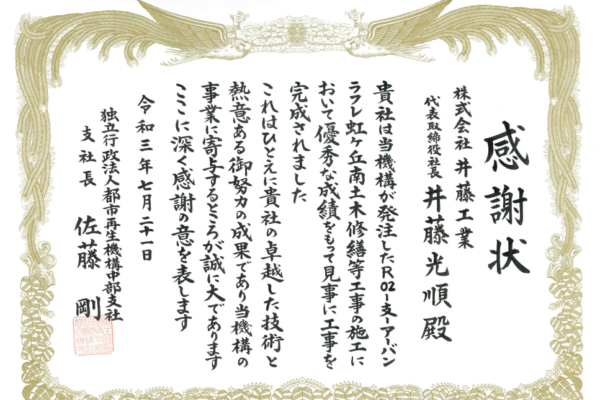 感謝状
株式会社 井藤工業
代表取締役社長 井藤光順 殿
貴社は当機構が発注したR02-支-アーバン
ラフレ虹ヶ丘南土木修繕等工事の施工に
おいて優秀な成績をもって見事に工事を
完成されました
これはひとえに貴社の卓越した技術と
熱意ある御努力の成果であり当機構の
事業に寄与するところが誠に大であります
ここに深く感謝の意を表します
令和三年七月二十一日
独立行政法人都市再生機構中部支社
支社長 佐藤 剛